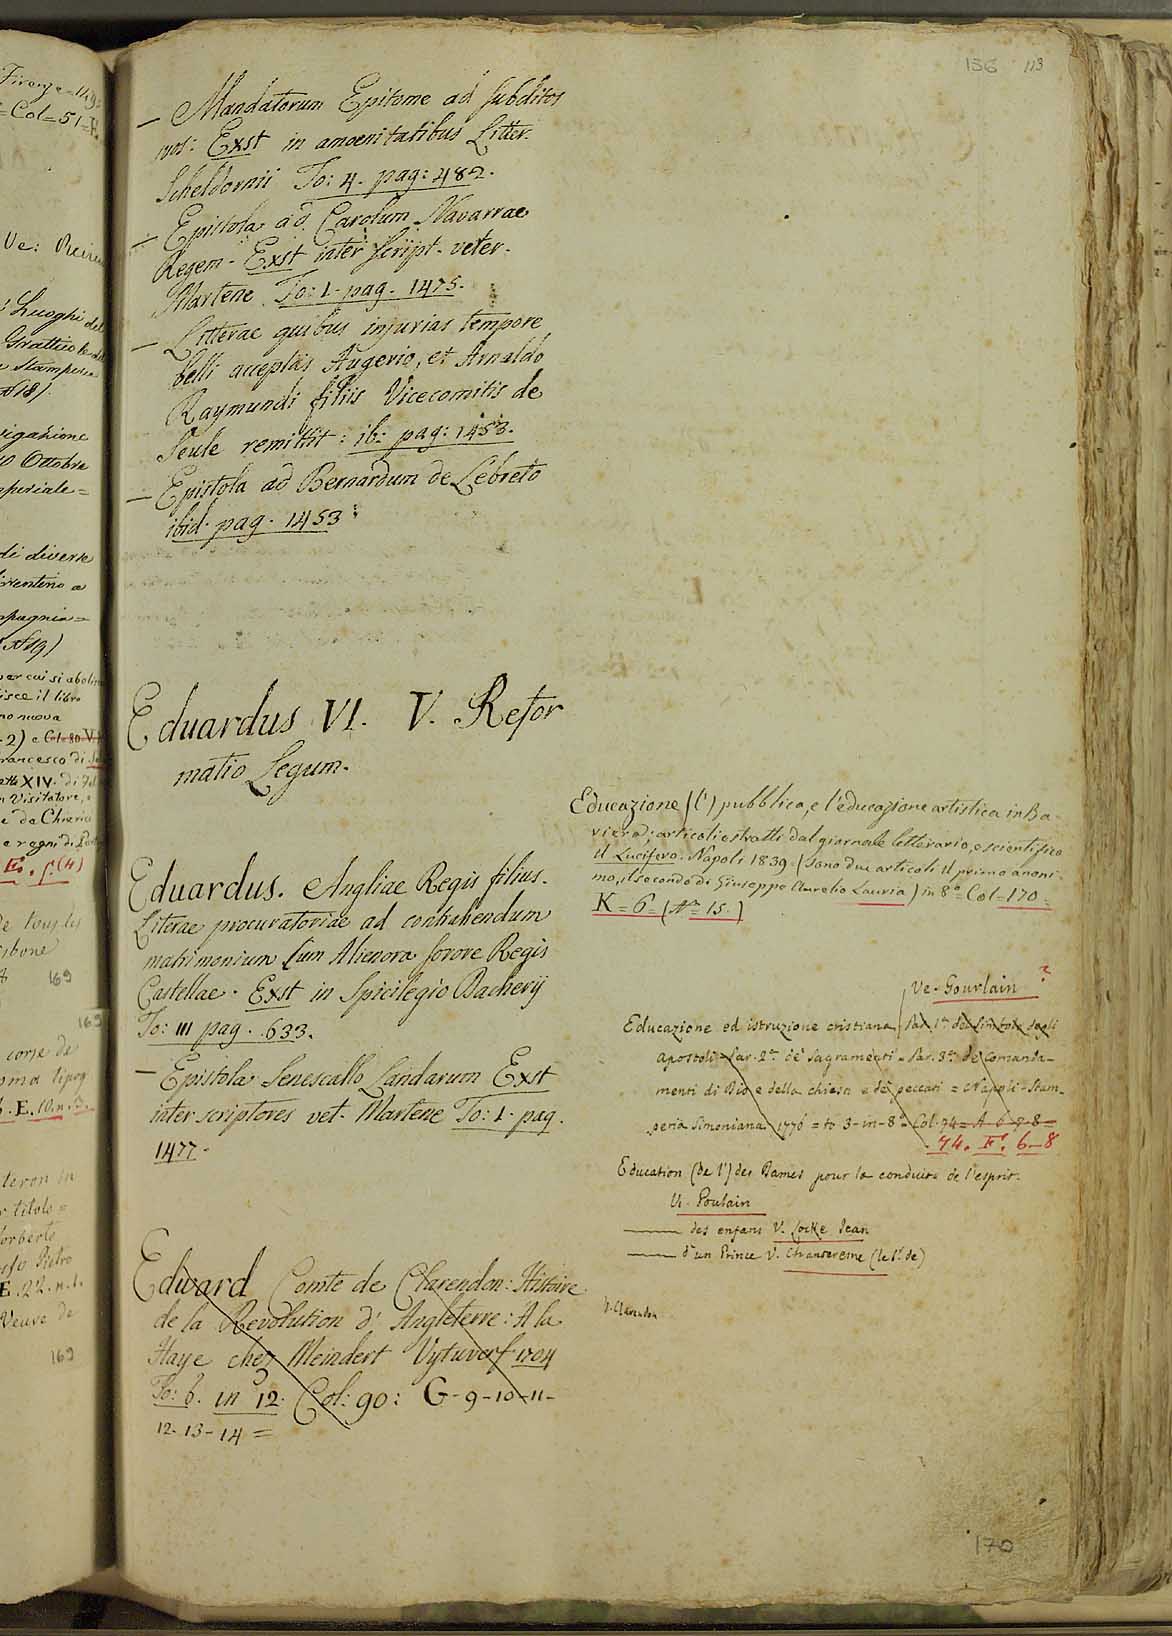 156 113
— Mandatorum Epitome ad subditos
suos: Exst in amoenitatibus Litter.
Scheldornii To: 4. pag: 482.
— Epistola ad Carolum Navarrae
Regem - Exst inter script. veter.
Martene To: 1. pag. 1475.
— Litterae quibus injurias tempore
belli acceptas Augerio, et Arnaldo
Raymundi filiis Vicecomitis de
Seule remittit: ib: pag: 1453.
— Epistola ad Bernardum de Lebreto
ibid. pag. 1453
Eduardus VI. V. Refor
matio Legum.
Eduardus. Angliae Regis filius.
Literae procuratoriae ad contrahendum
matrimonium cum Alienora sorore Regis
Castellae. Exst in Spicilegio Dacherij
To: III pag. 633.
— Epistola Senescallo Landarum Exst
inter scriptores vet. Martene To: 1. pag.
1477.
Edward Comte de Clarendon: Histoire
de la Revolution d' Angleterre: A la
Haye chez Meindert Vytuverf 1704
To: 6. in 12. Col: 90: G-9-10-11-
12-13-14=
Educazione (l') pubblica, e l'educazione artistica in Ba-
viera; articoli estratti dal giornale letterario, e scientifico
il Lucifero. Napoli 1839. (sono due articoli il primo anoni-
mo, il secondo di Giuseppe Aurelio Lauria) in 8° = Col = 170 =
K = 6 = (N° = 15.)
Ve. Gourlain ?
Educazione ed istruzione cristiana Par. 1a del Simbolo degli
apostoli = Par. 2a de' Sagramenti = Par. 3a de' Comanda-
menti di Dio e della chiesa e de' peccati = Napoli = Stam-
peria Simoniana 1776 = to 3 = in = 8° = Col. 74 = A 6-7-8 =
74. E. 6-8
Education (de l') des Dames pour la conduite de l'esprit.
V. Poulain
—— des enfans V. Locke Jean
—— d'un Prince V. Chanteresne (le Sr. de)
V. Clarendon
170
Firenze = 149
= Col = 51 =
Ve:
Luoghi del
Stamperia
igazione
10 Ottobre
periale =
di diverse
iventino a
mpagnia =
er cui si aboli
isce il libro
no nuova
-2)
rancesco di
XIV. di
n Visitatore,
e da Chreri
e regni di
E. f. (4)
de tous les
169
169
corse de
E. 10. n. 2.
r titolo =
orberto
Pietro
E. 22. n. 1.
Veuve de
169